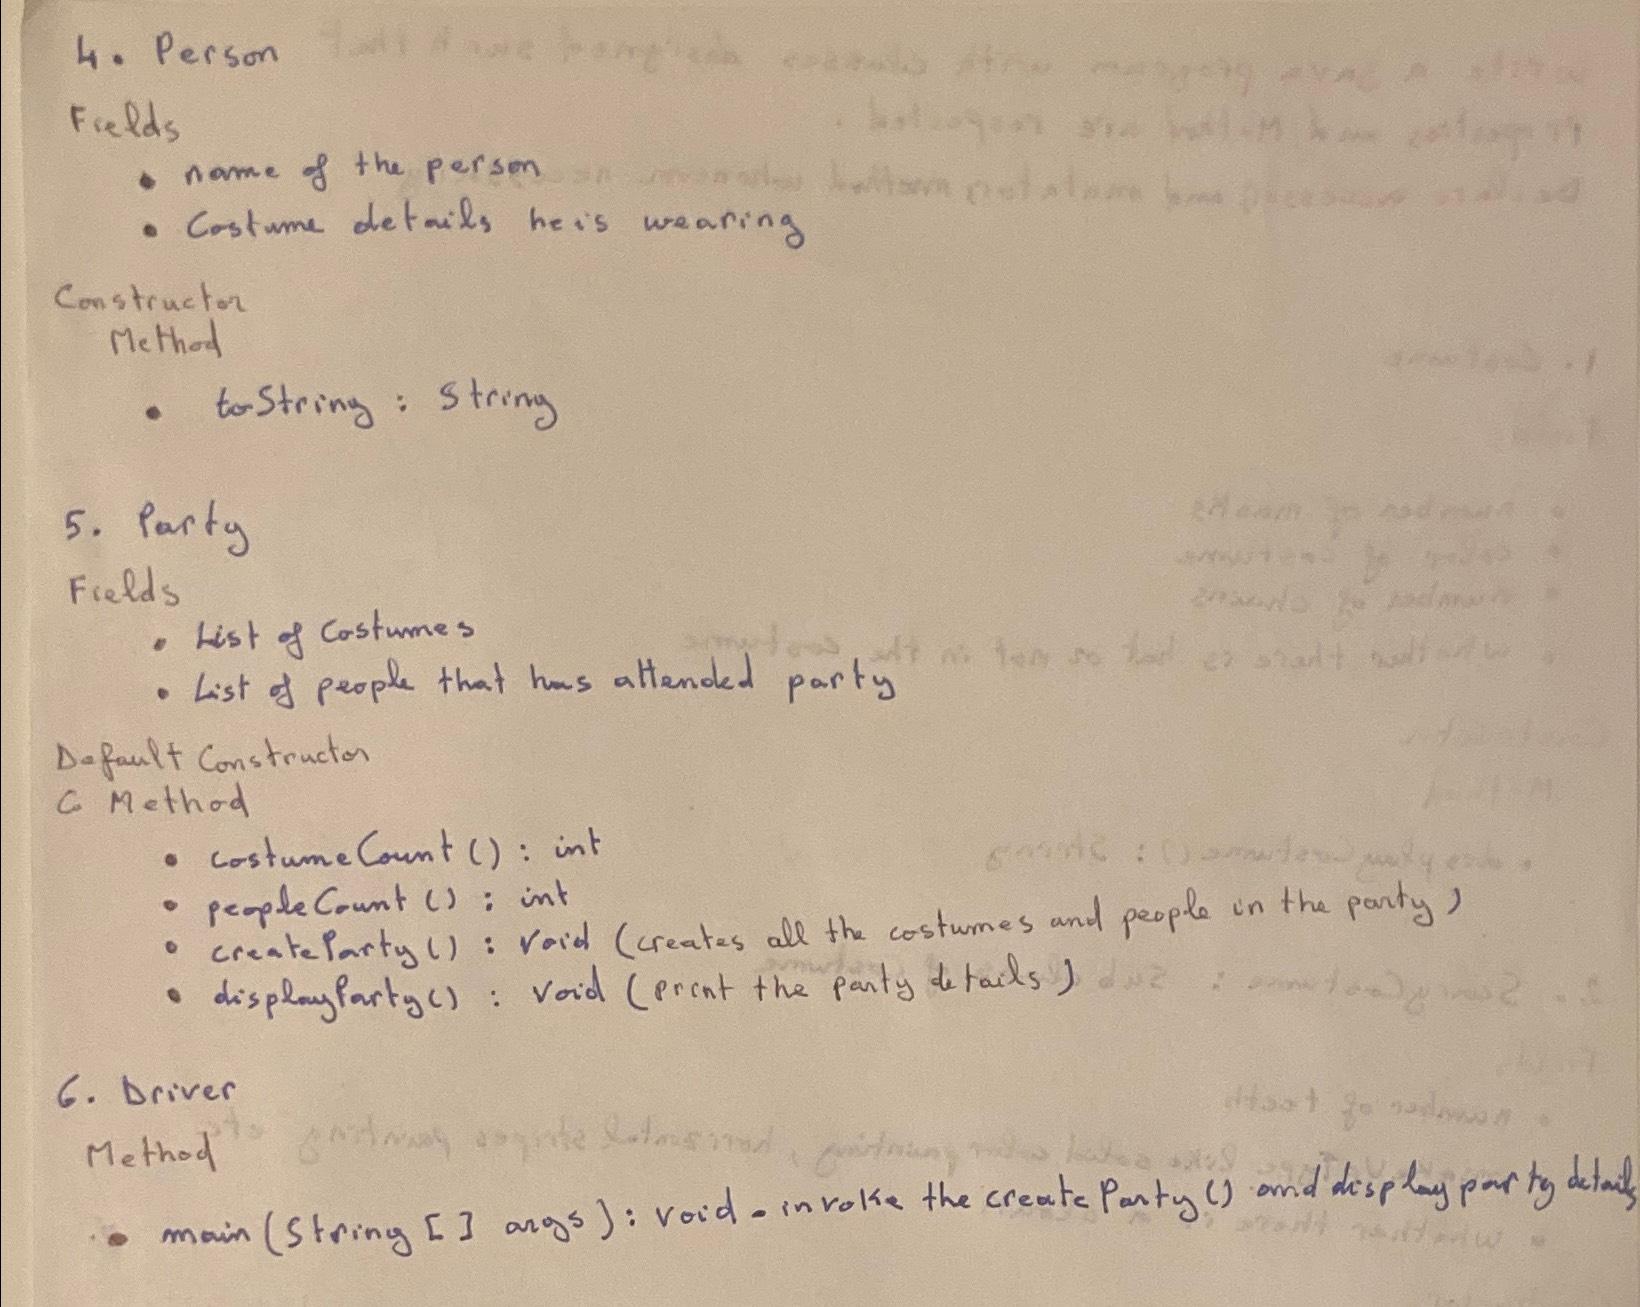 4. Person
Fields
• name of the person
• Costume details he is wearing
Constructor
Method
• toString : String
5. Party
Fields
• List of Costumes
• List of people that has attended party
Default Constructor
G Method
• costumeCount () : int
• peopleCount () : int
• createParty () : void (creates all the costumes and people in the party)
• displayParty () : void (print the party details)
6. Driver
Method
• main (String [] args) : void - invoke the createParty () and display party details